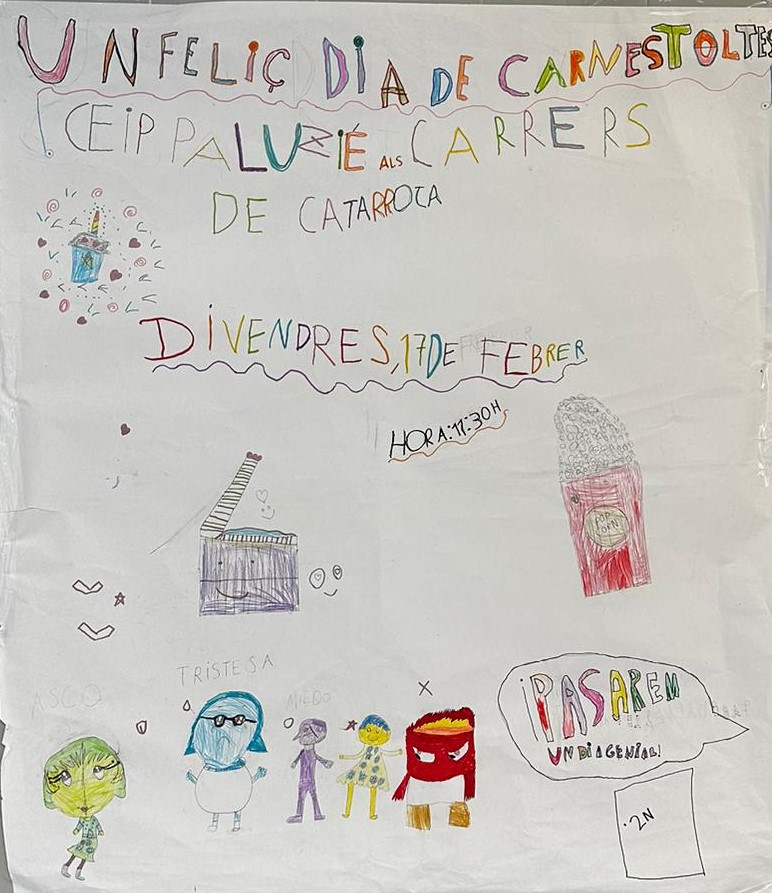 UN FELIÇ DIA DE CARNESTOLTES
CEIP PALUZIÉ ALS CARRERS
DE CATARROCA
DIVENDRES, 17 DE FEBRER
HORA: 11:30H
POP
CORN
TRISTESA
ASCO
MIEDO
¡PASAREM
UN DIA GENIAL!
2N